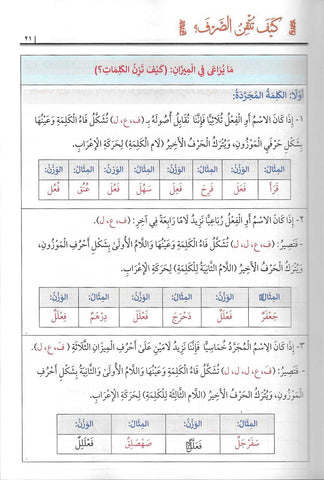 كَيْفَ تُتْقِنُ الصَّرْفَ؟
٢١
مَا يُرَاعَى فِي المِيزَانِ: (كَيْفَ تَزِنُ الكَلِمَاتِ؟)
أَوَّلًا: الكَلِمَةُ المُجَرَّدَةُ:
١- إِذَا كَانَ الِاسْمُ أَوِ الْفِعْلُ ثُلَاثِيًّا فَإِنَّنَا نُقَابِلُ أُصُولَهُ بِـ (ف، ع، ل) تُشَكَّلُ فَاءُ الْكَلِمَةِ وَعَيْنُهَا
بِشَكْلِ حَرْفَيِ الْمَوْزُونِ، وَيُتْرَكُ الْحَرْفُ الْأَخِيرُ (لَامُ الْكَلِمَةِ) لِحَرَكَةِ الْإِعْرَابِ.
المِثَالُ: الوَزْنُ: المِثَالُ: الوَزْنُ: المِثَالُ: الوَزْنُ: المِثَالُ: الوَزْنُ:
قَرَأَ فَعَلَ فَرِحَ فَعِلَ سَهْلٌ فَعْلٌ عُنُقٌ فُعُلٌ
٢- إِذَا كَانَ الِاسْمُ أَوِ الْفِعْلُ رُبَاعِيًّا نَزِيدُ لَامًا رَابِعَةً فِي آخِرِهِ:
- فَتَصِيرُ: (ف، ع، ل، ل) تُشَكَّلُ فَاءُ الْكَلِمَةِ وَعَيْنُهَا وَاللَّامُ الْأُولَى بِشَكْلِ أَحْرُفِ الْمَوْزُونِ،
وَيُتْرَكُ الْحَرْفُ الْأَخِيرُ (اللَّامُ الثَّانِيَةُ لِلْكَلِمَةِ) لِحَرَكَةِ الْإِعْرَابِ.
المِثَالُ: الوَزْنُ: المِثَالُ: الوَزْنُ: المِثَالُ: الوَزْنُ:
جَعْفَرٌ فَعْلَلٌ دَحْرَجَ فَعْلَلَ دِرْهَمٌ فِعْلَلٌ
٣- إِذَا كَانَ الِاسْمُ الْمُجَرَّدُ خُمَاسِيًّا فَإِنَّنَا نَزِيدُ لَامَيْنِ عَلَى أَحْرُفِ الْمِيزَانِ الثَّلَاثَةِ (ف، ع، ل)
- فَتَصِيرُ: (ف، ع، ل، ل، ل) تُشَكَّلُ فَاءُ الْكَلِمَةِ وَعَيْنُهَا وَاللَّامُ الْأُولَى وَالثَّانِيَةُ بِشَكْلِ أَحْرُفِ
الْمَوْزُونِ، وَيُتْرَكُ الْحَرْفُ الْأَخِيرُ (اللَّامُ الثَّالِثَةُ لِلْكَلِمَةِ) لِحَرَكَةِ الْإِعْرَابِ.
المِثَالُ: الوَزْنُ: المِثَالُ: الوَزْنُ:
سَفَرْجَلٌ فَعَلَّلٌ صَهْصَلِقٌ فَعْلَلِلٌ